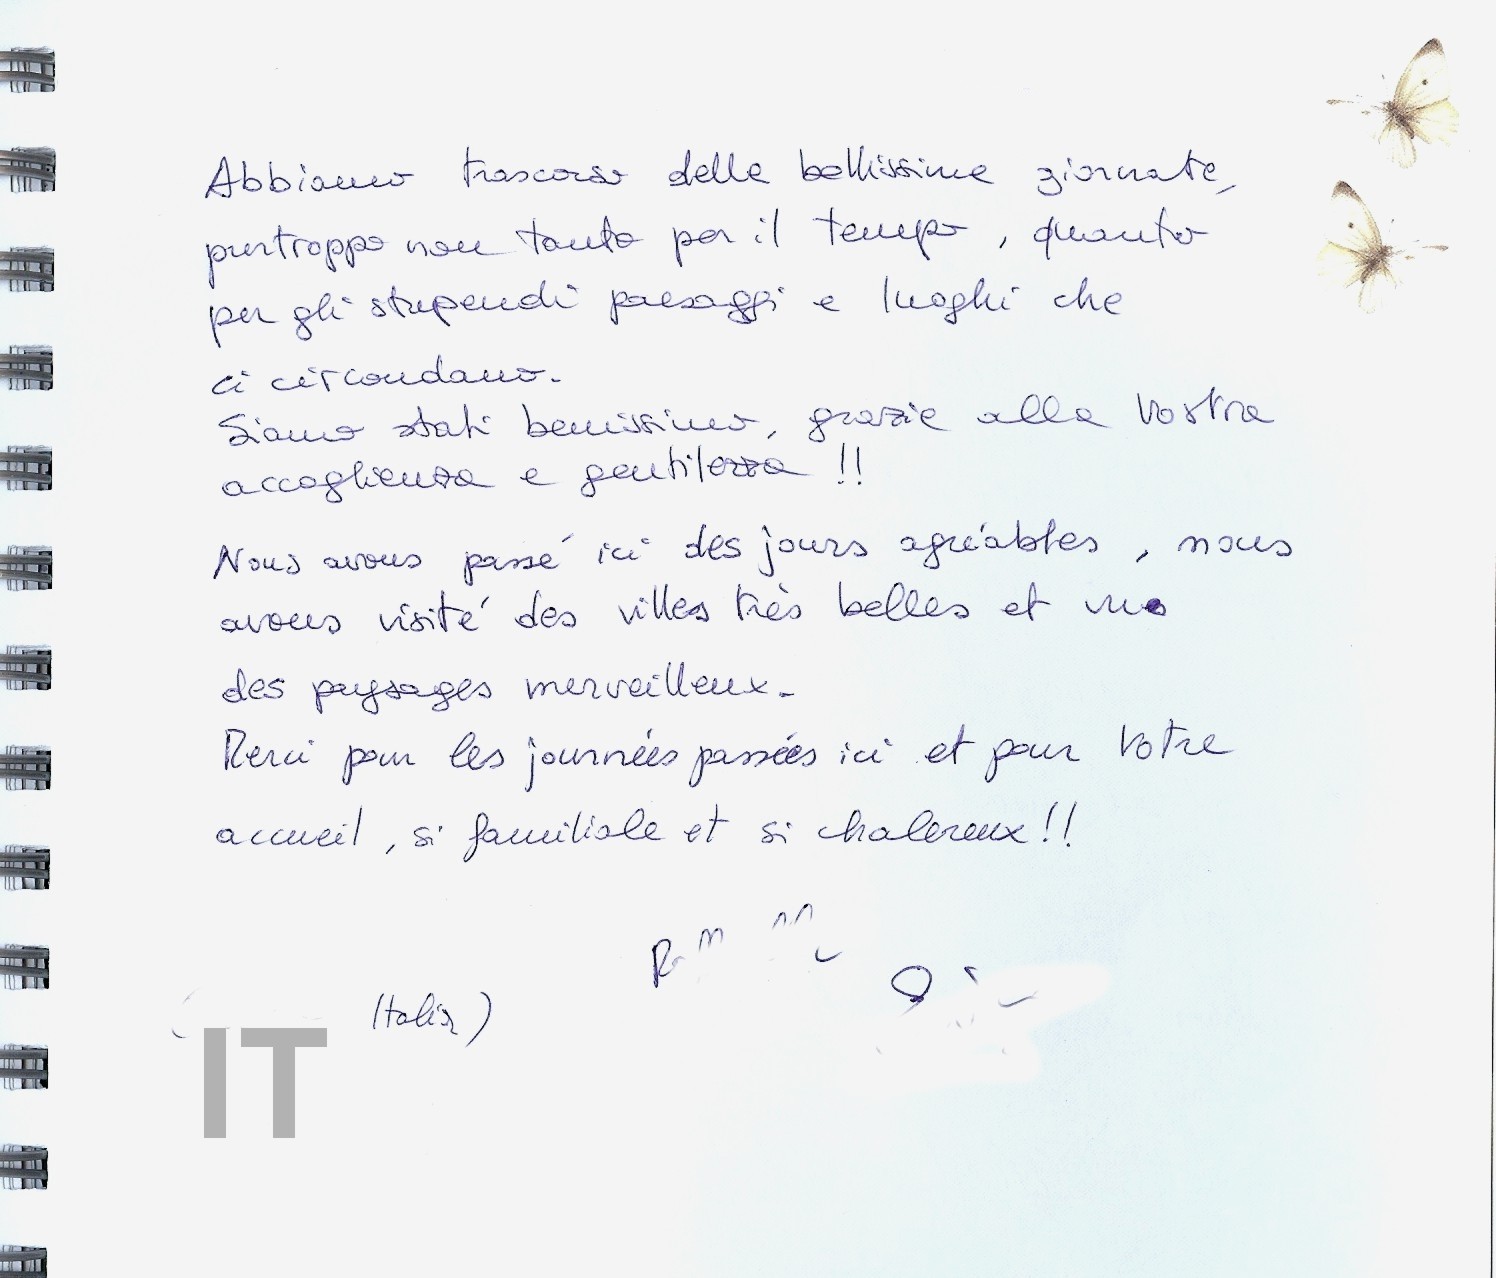 Abbiamo trascorso delle bellissime giornate,
purtroppo non tanto per il tempo, quanto
per gli stupendi paesaggi e luoghi che
ci circondano.
Siamo stati benissimo, grazie alla Vostra
accoglienza e gentilezza!!
Nous avons passé ici des jours agréables, nous
avons visité des villes très belles et vu
des paysages merveilleux.
Merci pour les journées passées ici et pour Votre
accueil, si familiale et si chalereux!!
Italia)
IT